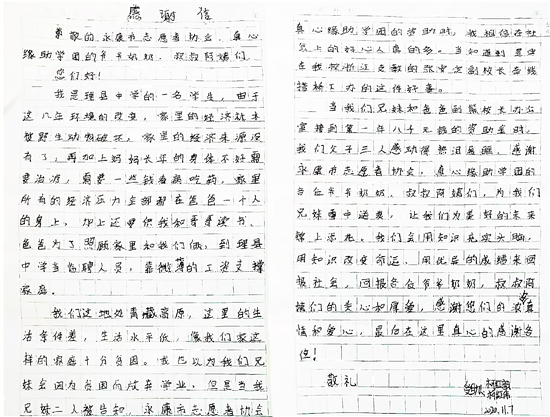 感谢信
尊敬的永康市志愿者协会，真心
缘助学团的爷爷奶奶、叔叔阿姨们：
您们好！
我是理县中学的一名学生，由于
这几年环境的改变，家里的经济就来
被野生动物破坏，家里的经济来源没
有了，再加上妈妈长年的身体不好需
要治疗，需要一些钱看病吃药，家里
所有的经济压力全部都在爸爸一个人
的身上，加上还要供我和哥哥读书，
爸爸为了照顾家里和我们俩，到理县
中学当临聘人员，靠微薄的工资支撑
家庭。
我们这地处青藏高原，这里的生
活条件差，生活水平低，像我们家这
样的家庭十分贫困。我也以为我们兄
妹会因为贫困而放弃学业，但是当我
兄妹二人被告知，永康市志愿者协会
真心缘助学团的资助时，我相信在社
会上的好心人真的多。当知道到是由
在我校浙江支教的张副校长牵线
搭桥下办的这件好事。
当我们兄妹和爸爸到张校长办公
室接到第一年八千元钱的资助金时，
我们父子三人感动得热泪盈眶，感谢
永康市志愿者协会，真心缘助学团的
各位爷爷奶奶、叔叔阿姨们，为我们
兄妹雪中送炭，让我们为美好的未来
撑上添花。我们会用知识充实头脑，
用知识改变命运，用优异的成绩来回
报社会，回报各位爷爷奶奶，叔叔阿
姨们的关心和厚爱，感谢您们的真
情和爱心，最后在这里真心的感谢各
位！
敬礼